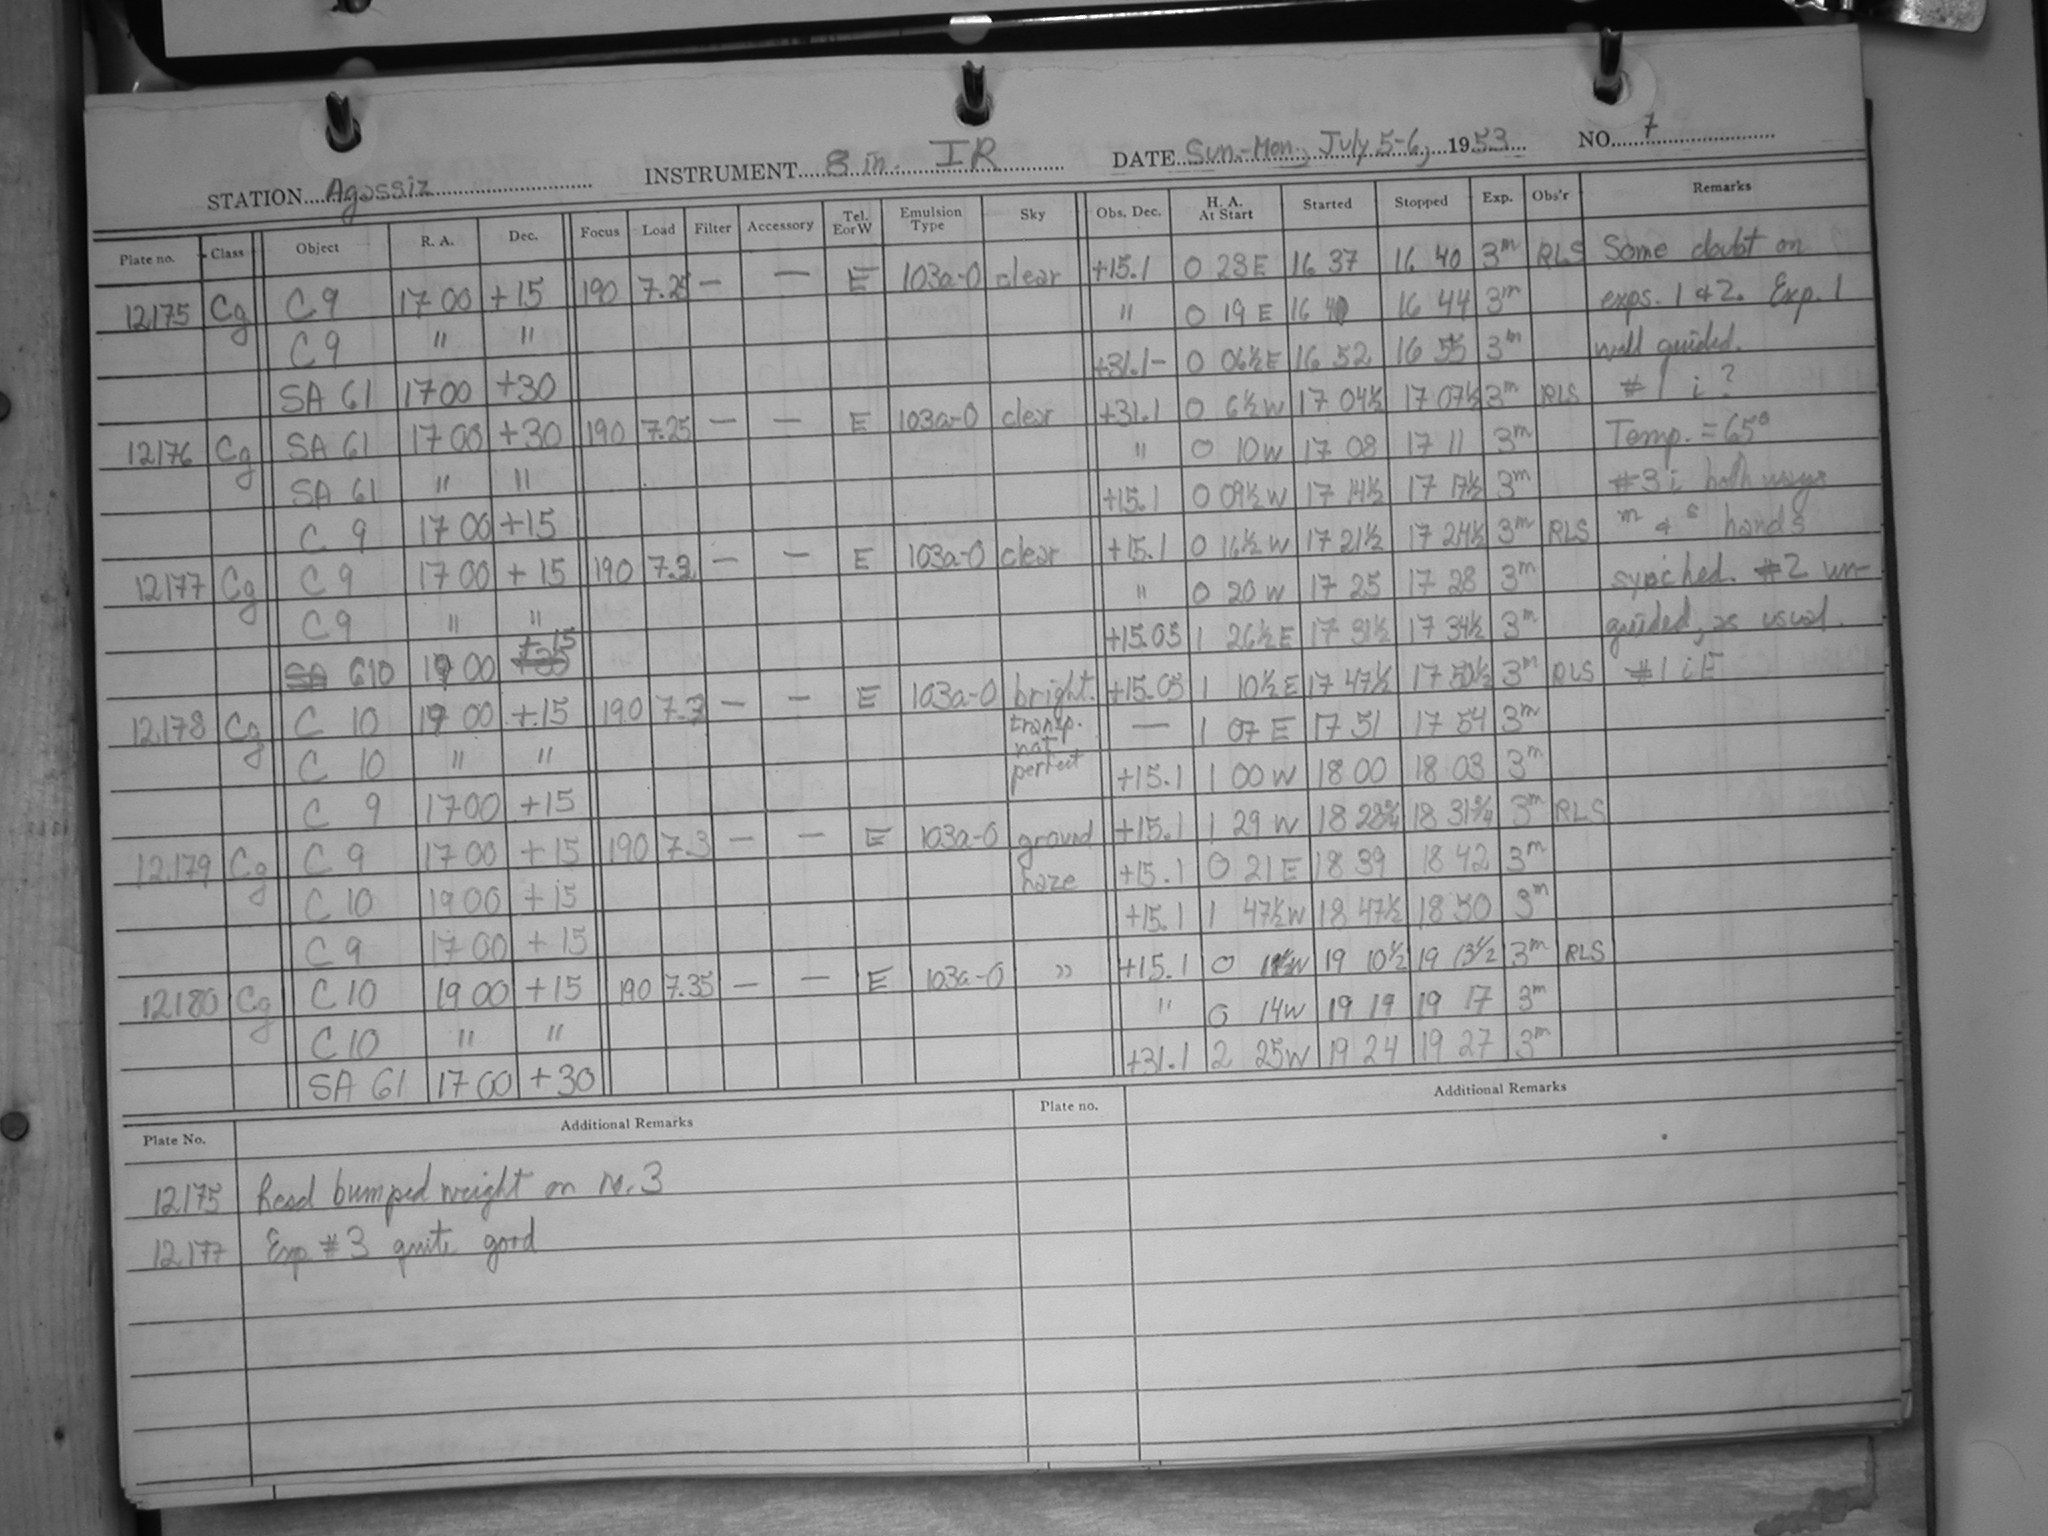 STATION Agassiz INSTRUMENT 8 in. IR DATE Sun.-Mon., July 5-6, 1953 NO. 7
Plate no. Class Object R. A. Dec. Focus Load Filter Accessory Tel. E or W Emulsion Type Sky Obs. Dec. H. A. At Start Started Stopped Exp. Obs'r Remarks
12175 Cg C 9 17 00 +15 190 7.25 — — E 103a-O clear +15.1 0 23 E 16 37 16 40 3m RLS Some doubt on
C 9 " " " 0 19 E 16 16 44 3m exps. 1 & 2. Exp. 1
SA 61 17 00 +30 +31.1- 0 06½ E 16 52 16 55 3m well guided.
12176 Cg SA 61 17 00 +30 190 7.25 — — E 103a-O clear +31.1 0 6½ W 17 04½ 17 07½ 3m RLS # 1 i ?
SA 61 " " " 0 10 W 17 08 17 11 3m Temp. = 65°
C 9 17 00 +15 +15.1 0 09½ W 17 14½ 17 17½ 3m #3 i both ways
12177 Cg C 9 17 00 +15 190 7.3 — — E 103a-O clear +15.1 0 16½ W 17 21½ 17 24½ 3m RLS m & s hands
C 9 " " " 0 20 W 17 25 17 28 3m synched. #2 un-
SA 610 19 00 +30 +15 +15.05 1 26½ E 17 31½ 17 34½ 3m guided, as usual.
12178 Cg C 10 19 00 +15 190 7.3 — — E 103a-O bright. +15.05 1 10½ E 17 47½ 17 50½ 3m RLS #1 i E
C 10 " " transp. not — 1 07 E 17 51 17 54 3m
C 9 17 00 +15 perfect +15.1 1 00 W 18 00 18 03 3m
12179 Cg C 9 17 00 +15 190 7.3 — — E 103a-O ground +15.1 1 29 W 18 28¾ 18 31¾ 3m RLS
C 10 19 00 +15 haze +15.1 0 21 E 18 39 18 42 3m
C 9 17 00 +15 +15.1 1 47½ W 18 47½ 18 50 3m
12180 Cg C 10 19 00 +15 190 7.35 — — E 103a-O " +15.1 0 W 19 10½ 19 13½ 3m RLS
C 10 " " " 0 14 W 19 19 17 3m
SA 61 17 00 +30 +31.1 2 25 W 19 24 19 27 3m
Plate No. Additional Remarks Plate no. Additional Remarks
12175 head bumped weight on no. 3
12177 Exp. # 3 quite good